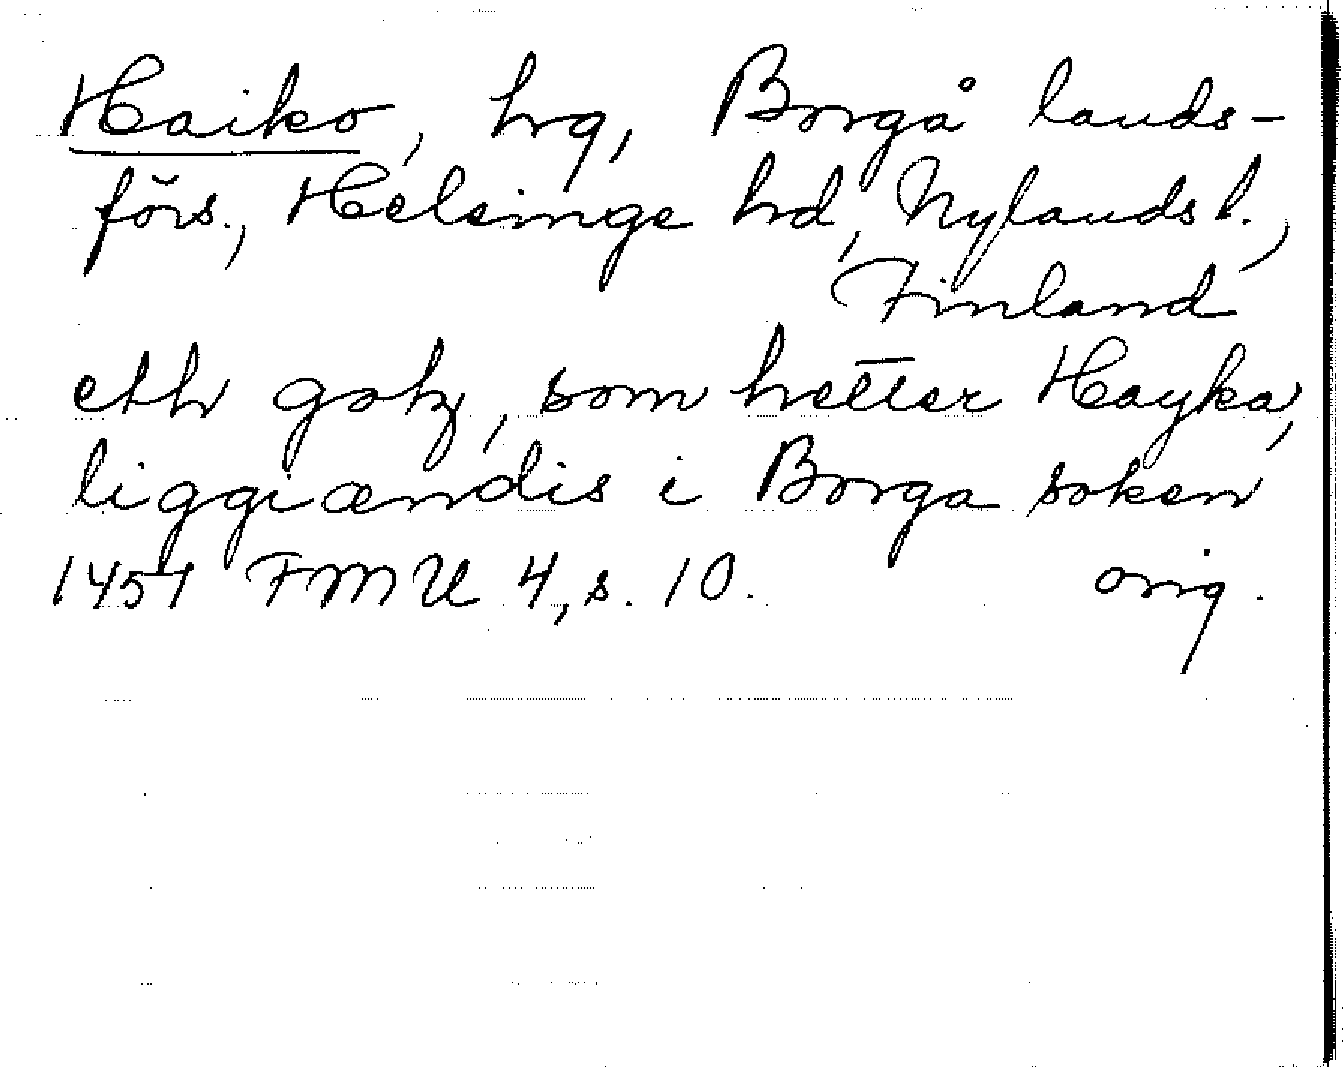 Haiko, hrg, Borgå lands-
förs., Helsinge hrd, Nylands l.,
Finland
eth gotz, som hetter Hayka,
liggiændis i Borga soken
1454 FMU 4, s. 10. orig.